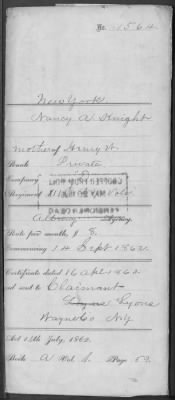 No. 1564
New York
Nancy A Knight
mother of Henry W.
Rank Private
Company
Regiment N.Y. Vols
Albany Agency
Rate per month, $ 8.
Commencing 14 Sept 1862.
Certificate dated 16 Apl 186
and sent to Claimant
Lyons
Wayne Co N.Y.
Act 14th July, 1862.
Book A Vol. Page 59